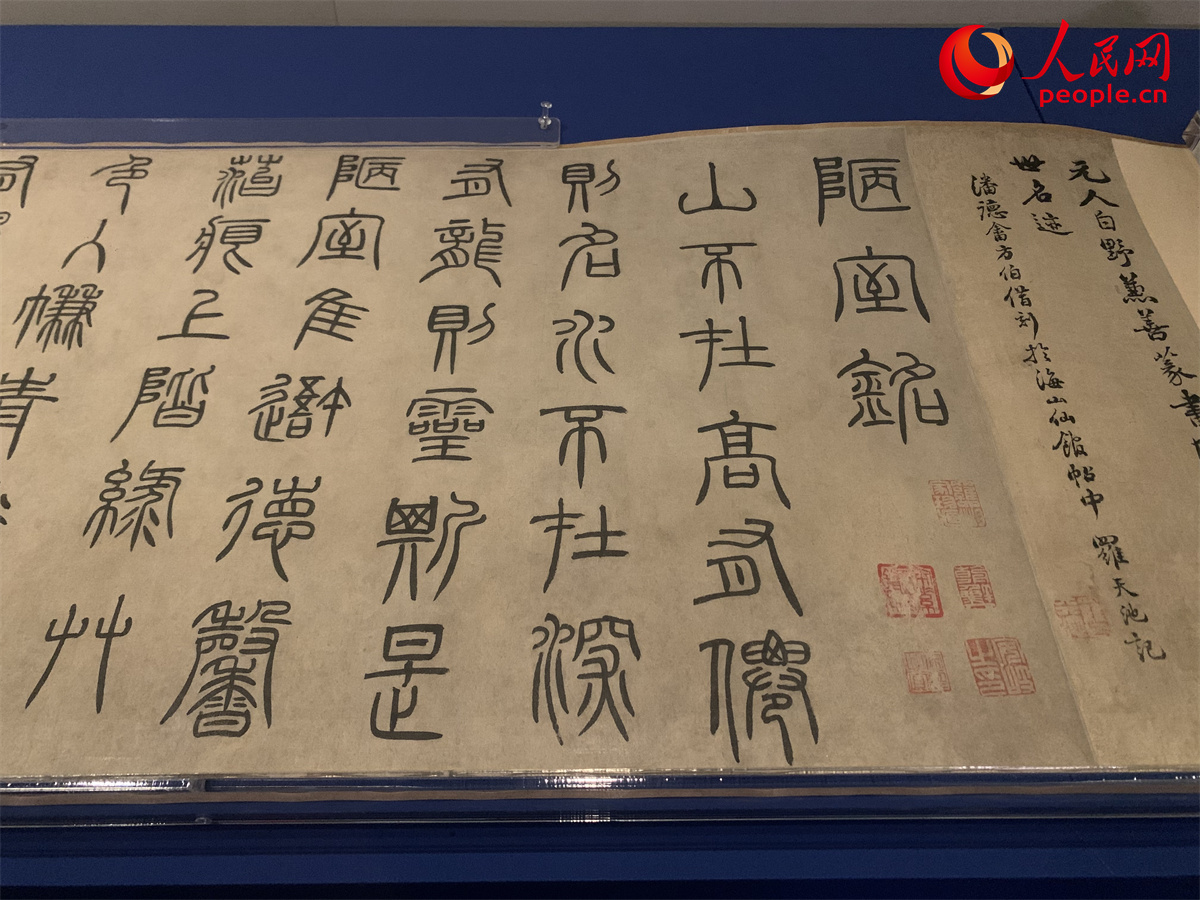 人民网
people.cn
元人白野兼善篆書
世名迹
潘德畬方伯借刻於海山仙館帖中 羅天池記
陋室銘
山不在高有僊
則名水不在深
有龍則靈斯是
陋室隹吾德馨
菭痕上階綠艸
色入㡘青